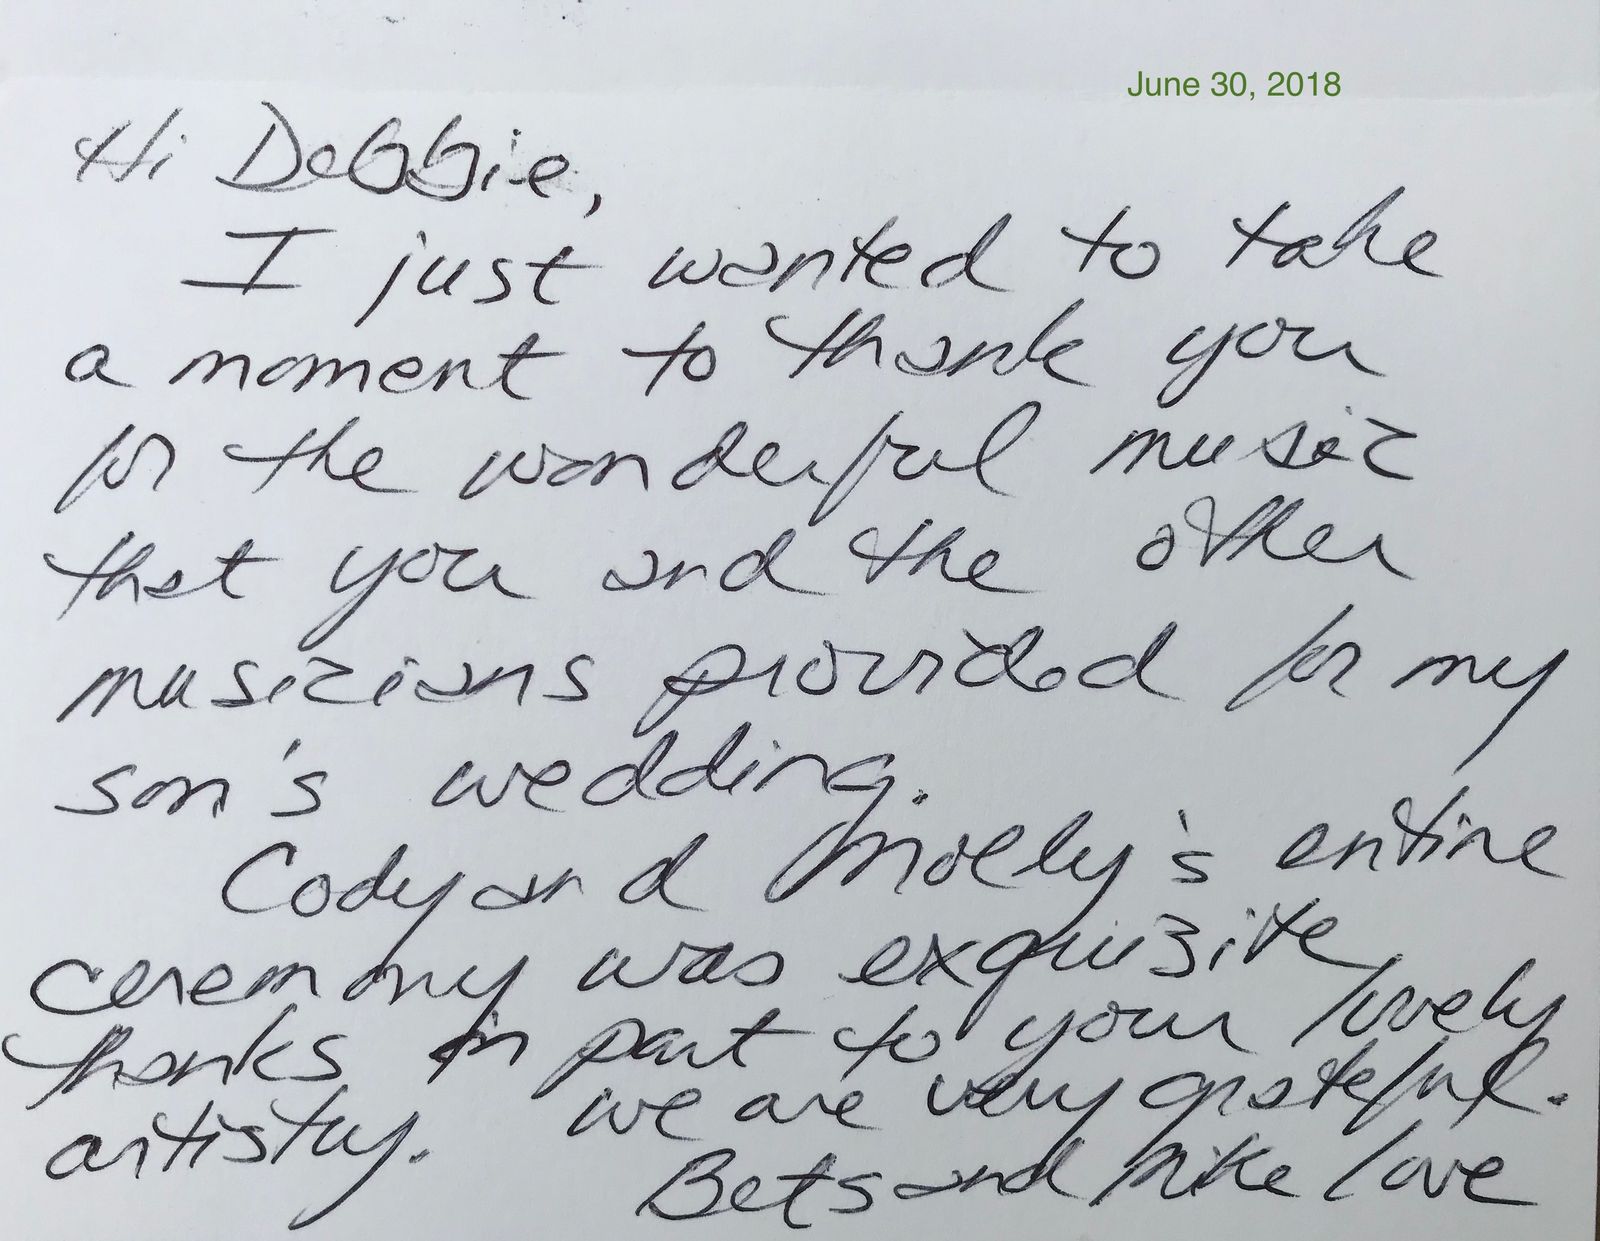 June 30, 2018
Hi Debbie,
I just wanted to take
a moment to thank you
for the wonderful music
that you and the other
musicians provided for my
son's wedding.
Cody and Molly's entire
ceremony was exquisite
thanks in part to your lovely
artistry. We are very grateful.
Bets and Mike Love